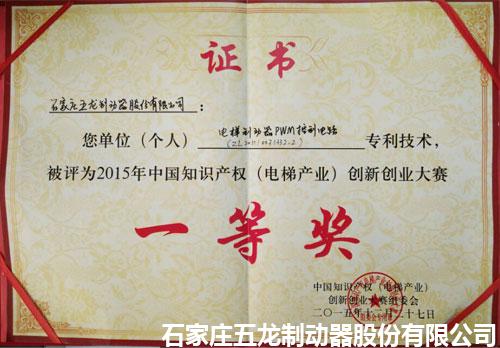 证书
石家庄五龙制动器股份有限公司：
您单位（个人） 电梯制动器PWM控制电路 专利技术，
被评为2015年中国知识产权（电梯产业）创新创业大赛
一等奖
中国知识产权（电梯产业）
创新创业大赛组委会
二〇一五年十二月二十七日
石家庄五龙制动器股份有限公司